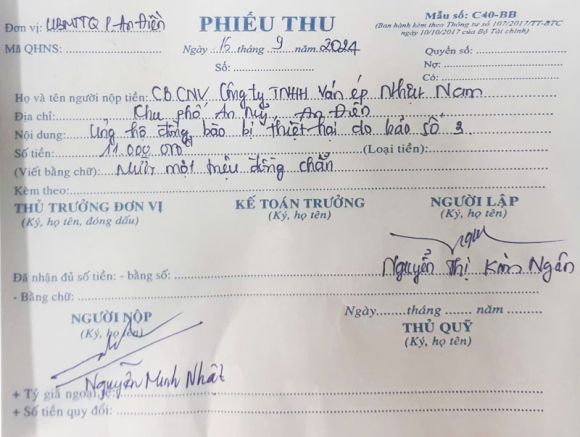 Đơn vị: UBMTTQ P. An Điền
PHIẾU THU
Mẫu số: C40-BB
(Ban hành kèm theo Thông tư số 107/2017/TT-BTC
ngày 10/10/2017 của Bộ Tài chính)
Mã QHNS:
Ngày 15 tháng 9 năm 2024
Quyển số:
Số:
Nợ:
Có:
Họ và tên người nộp tiền: CB CNV Công ty TNHH Ván ép Nhật Nam
Địa chỉ: Khu phố An Mỹ, An Điền
Nội dung: Ủng hộ đồng bào bị thiệt hại do bão số 3
Số tiền: 11.000.000đ (Loại tiền):
(Viết bằng chữ): Mười một triệu đồng chẵn
Kèm theo:
THỦ TRƯỞNG ĐƠN VỊ KẾ TOÁN TRƯỞNG NGƯỜI LẬP
(Ký, họ tên, đóng dấu) (Ký, họ tên) (Ký, họ tên)
Nguyễn Thị Kim Ngân
Đã nhận đủ số tiền: - bằng số:
- Bằng chữ:
Ngày tháng năm
NGƯỜI NỘP THỦ QUỸ
(Ký, họ tên) (Ký, họ tên)
Nguyễn Minh Nhật
+ Tỷ giá ngoại tệ:
+ Số tiền quy đổi: